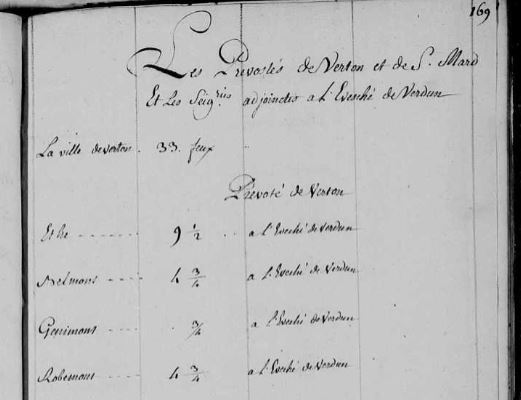 169
Les Prevostés de Verton et de S. Mard
Et Les Seig.ries adjointes a l'Evesché de Verdun
La ville de verton. 33. feux
Prevoté de Verton
Ethe 9 1/2 a l'Eveché de Verdun
4 3/4 a l'Eveché de Verdun
3/4 a l'Eveché de Verdun
Robemont 4 3/4 a l'Eveché de Verdun